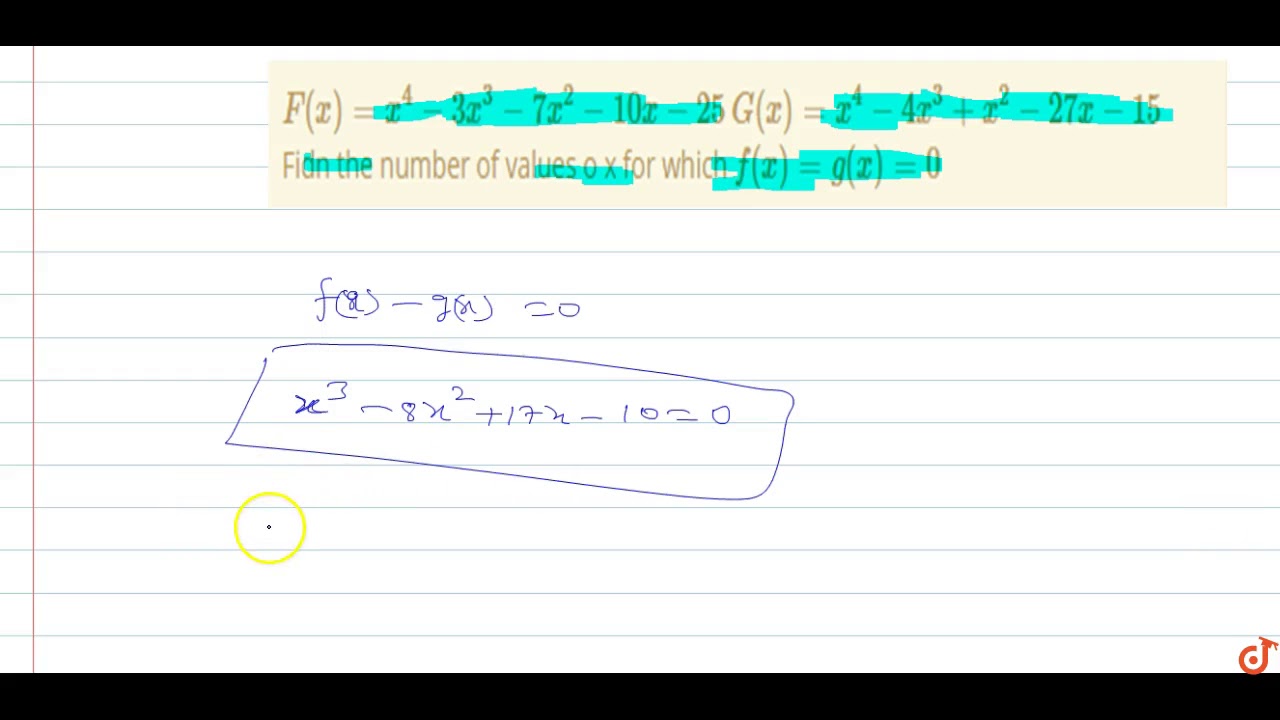 F(x) = x⁴ − 3x³ − 7x² − 10x − 25 G(x) = x⁴ − 4x³ + x² − 27x − 15
Fidn the number of values o x for which f(x) = g(x) = 0
f(x) − g(x) = 0
x³ − 8x² + 17x − 10 = 0